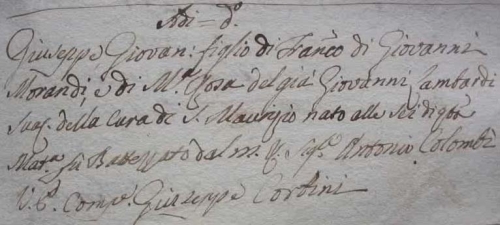 Adi = d.º
Giuseppe Giovan: figlio di Fran.co di Giovanni
Morandi, e di M.a Rosa del già Giovanni Lambardi
Sua della Cura di S. Maurizio nato alle sei di q.ta
Mat.a fù Battezzato dal m. Sig.e Antonio Colombi
V. C. Comp.e Giuseppe Cortini